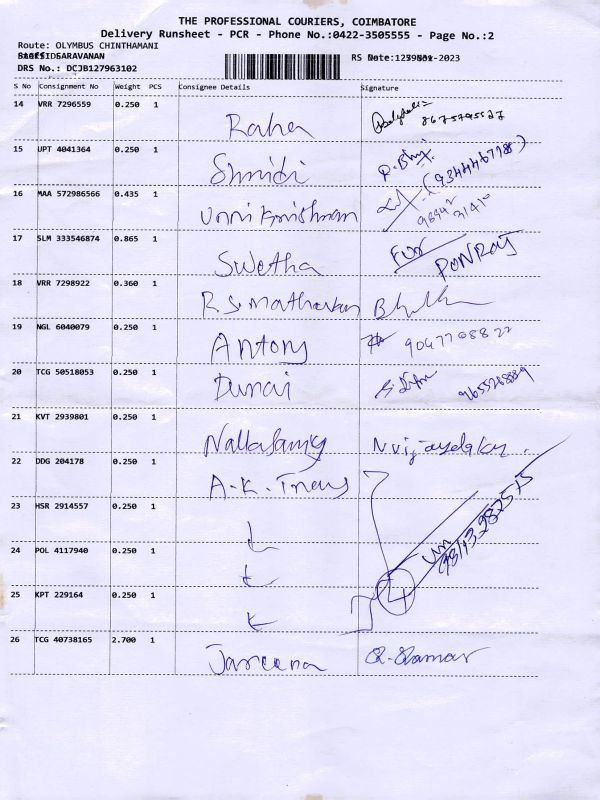 THE PROFESSIONAL COURIERS, COIMBATORE
Delivery Runsheet - PCR - Phone No.:0422-3505555 - Page No.:2
Route: OLYMBUS CHINTHAMANI
SARAVANAN
DRS No.: DCJB127963102
RS Date: -2023
S No Consignment No Weight PCS Consignee Details Signature
14 VRR 7296559 0.250 1 Raha 8675795527
15 UPT 4041364 0.250 1 Shridi (9344467788)
16 MAA 572986566 0.435 1 Unnikrishnan 98942 31410
17 SLM 333546874 0.865 1 Swetha For PONRAJ
18 VRR 7298922 0.360 1 R.S. Mathavan
19 NGL 6040079 0.250 1 Antony 9047708822
20 TCG 50518053 0.250 1 Durai 9655268889
21 KVT 2939801 0.250 1 Nallasamy
22 DDG 204178 0.250 1 A.K. Trays
23 HSR 2914557 0.250 1
24 POL 4117940 0.250 1
25 KPT 229164 0.250 1 4
26 TCG 40738165 2.700 1 Jareena